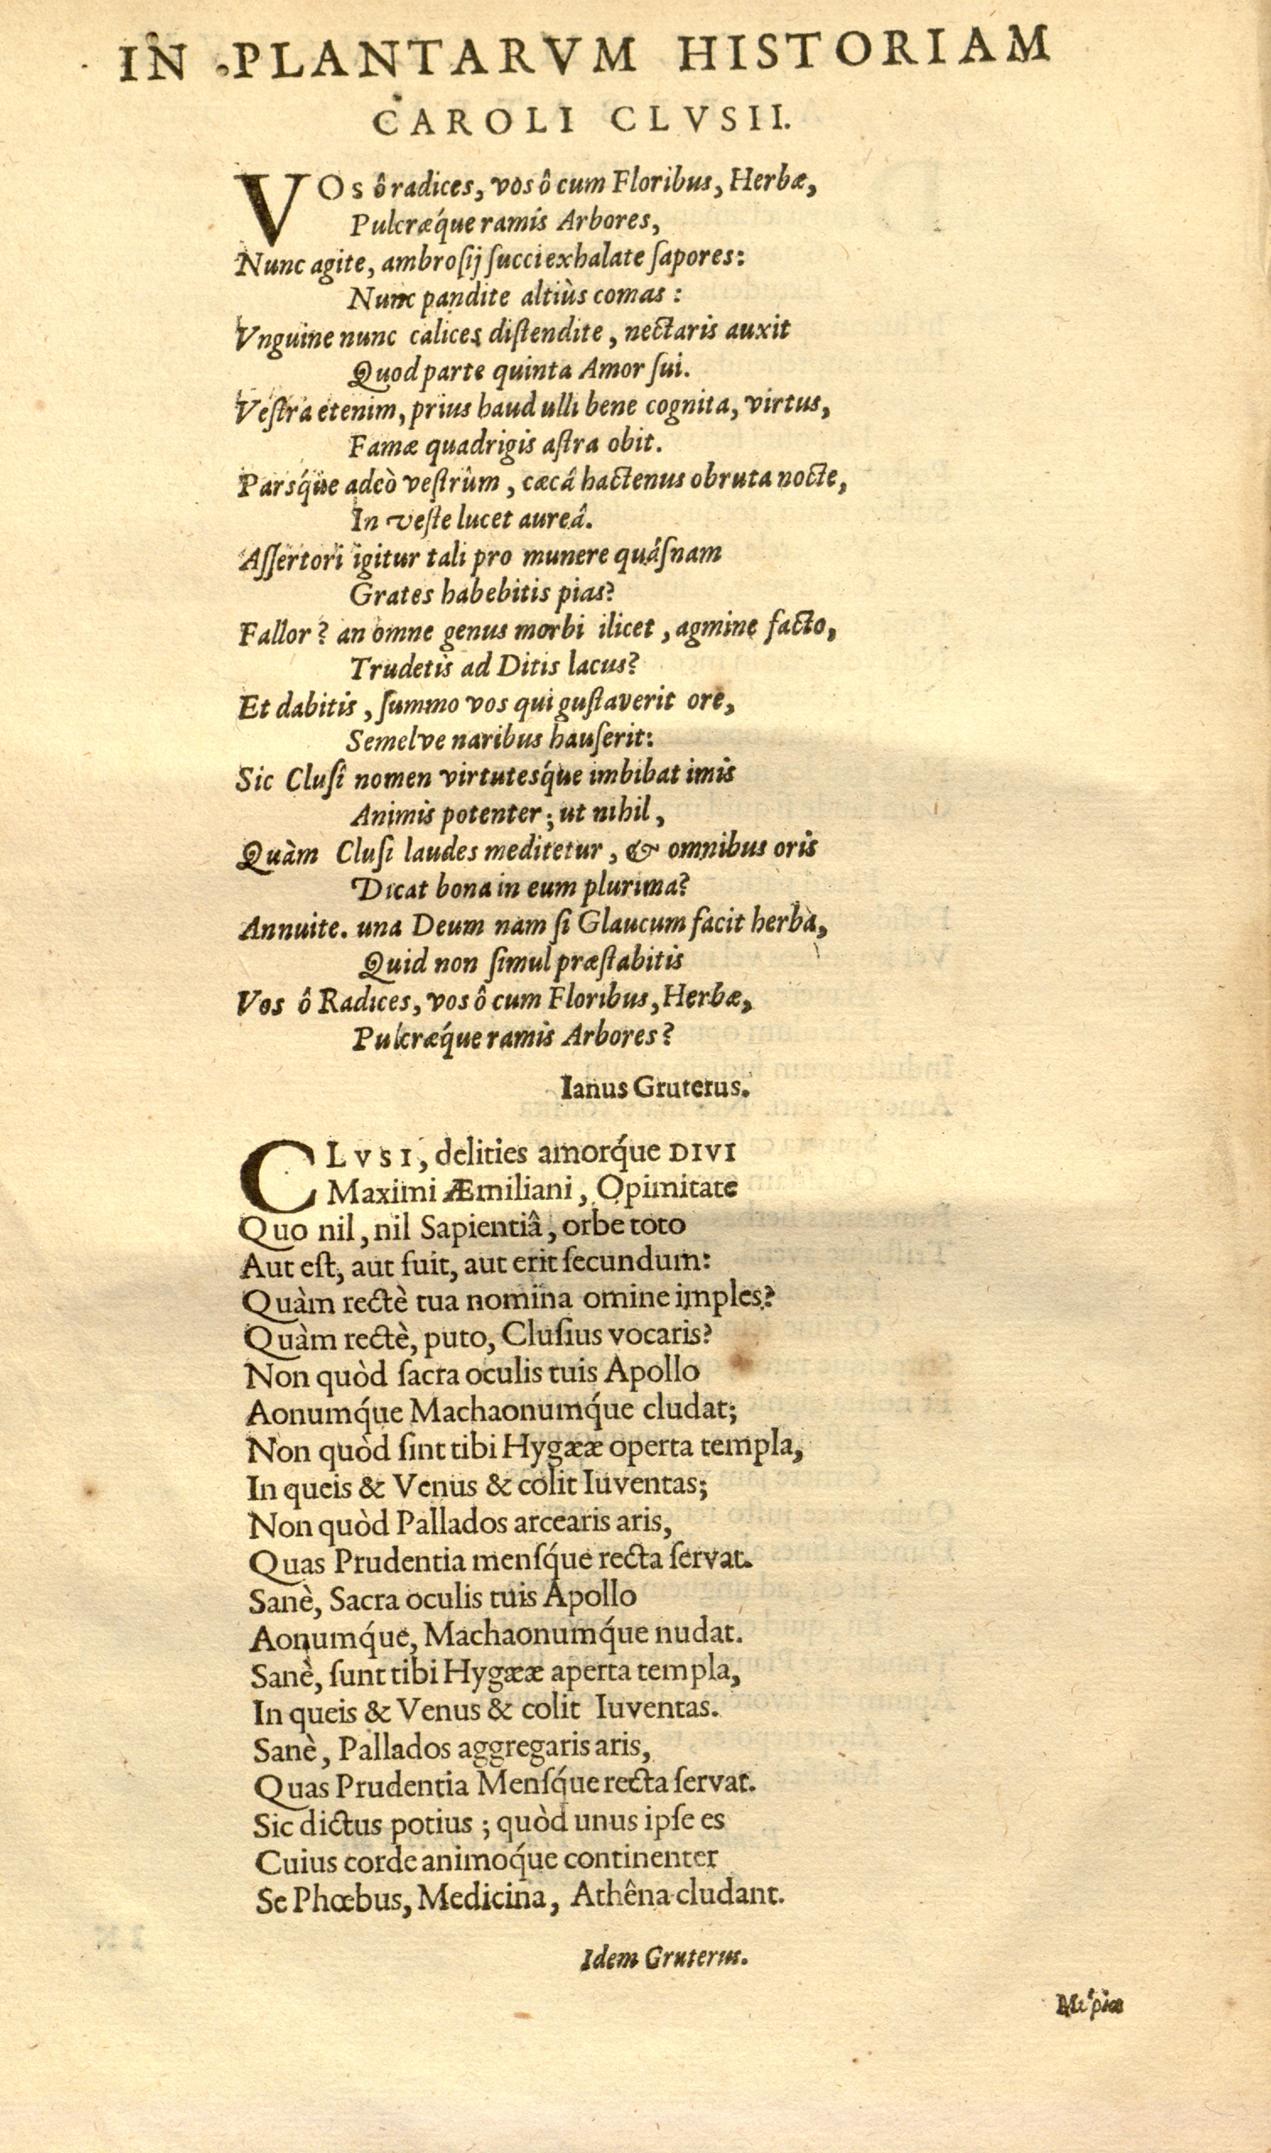 IN PLANTARVM HISTORIAM
CAROLI CLVSII.
VOs ô radices, vos ô cum Floribus, Herbæ,
Pulcræq́ue ramis Arbores,
Nunc agite, ambroſij ſucci exhalate ſapores:
Nunc pandite altiùs comas:
Vnguine nunc calices diſtendite, nectaris auxit
Quod parte quinta Amor ſui.
Veſtra etenim, prius haud ulli bene cognita, virtus,
Famæ quadrigis aſtra obit.
Parsq́ue adeò veſtrûm, cæcâ hactenus obruta nocte,
In veſte lucet aureâ.
Aſſertori igitur tali pro munere quáſnam
Grates habebitis pias?
Fallor? an omne genus morbi ilicet, agmine facto,
Trudetis ad Ditis lacus?
Et dabitis, ſummo vos qui guſtaverit ore,
Semelve naribus hauſerit:
Sic Cluſî nomen virtutesq́ue imbibat imis
Animis potenter; ut nihil,
Quàm Cluſi laudes meditetur, & omnibus oris
Dicat bona in eum plurima?
Annuite. una Deum nam ſi Glaucum facit herba,
Quid non ſimul præſtabitis
Vos ô Radices, vos ô cum Floribus, Herbæ,
Pulcræq́ue ramis Arbores?
Ianus Gruterus.
CLVSI, delities amorq́ue DIVI
Maximi Æmiliani, Opimitate
Quo nil, nil Sapientiâ, orbe toto
Aut eſt, aut fuit, aut erit ſecundum:
Quàm rectè tua nomina omine imples?
Quàm rectè, puto, Cluſius vocaris?
Non quòd ſacra oculis tuis Apollo
Aonumq́ue Machaonumq́ue cludat;
Non quòd ſint tibi Hygææ operta templa,
In queis & Venus & colit Iuventas;
Non quòd Pallados arcearis aris,
Quas Prudentia menſq́ue recta ſervat.
Sanè, Sacra oculis tuis Apollo
Aonumq́ue, Machaonumq́ue nudat.
Sanè, ſunt tibi Hygææ aperta templa,
In queis & Venus & colit Iuventas.
Sanè, Pallados aggregaris aris,
Quas Prudentia Menſq́ue recta ſervat.
Sic dictus potius; quòd unus ipſe es
Cuius corde animoq́ue continenter
Se Phœbus, Medicina, Athêna cludant.
Idem Gruterus.